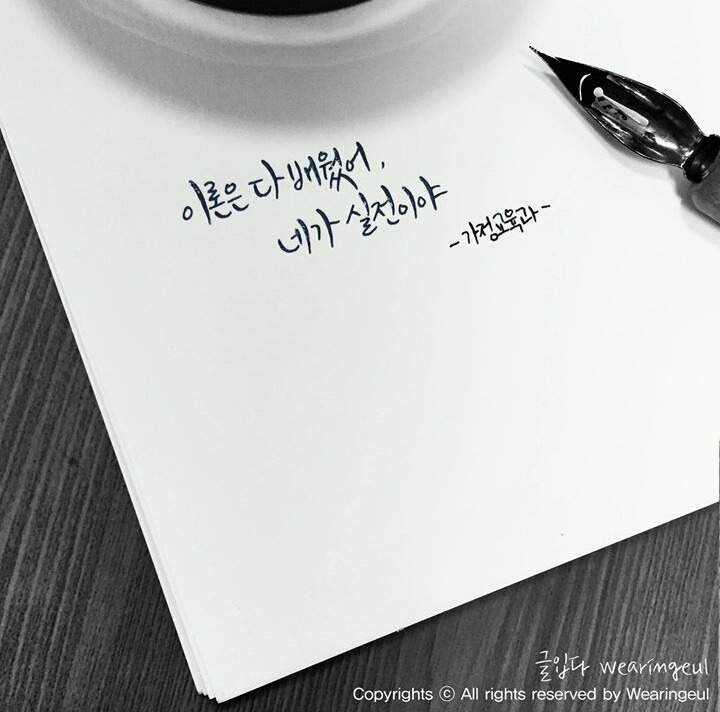 이론은 다 배웠어,
네가 실전이야
-가정교육과-
글입다 wearingeul
Copyrights ⓒ All rights reserved by Wearingeul